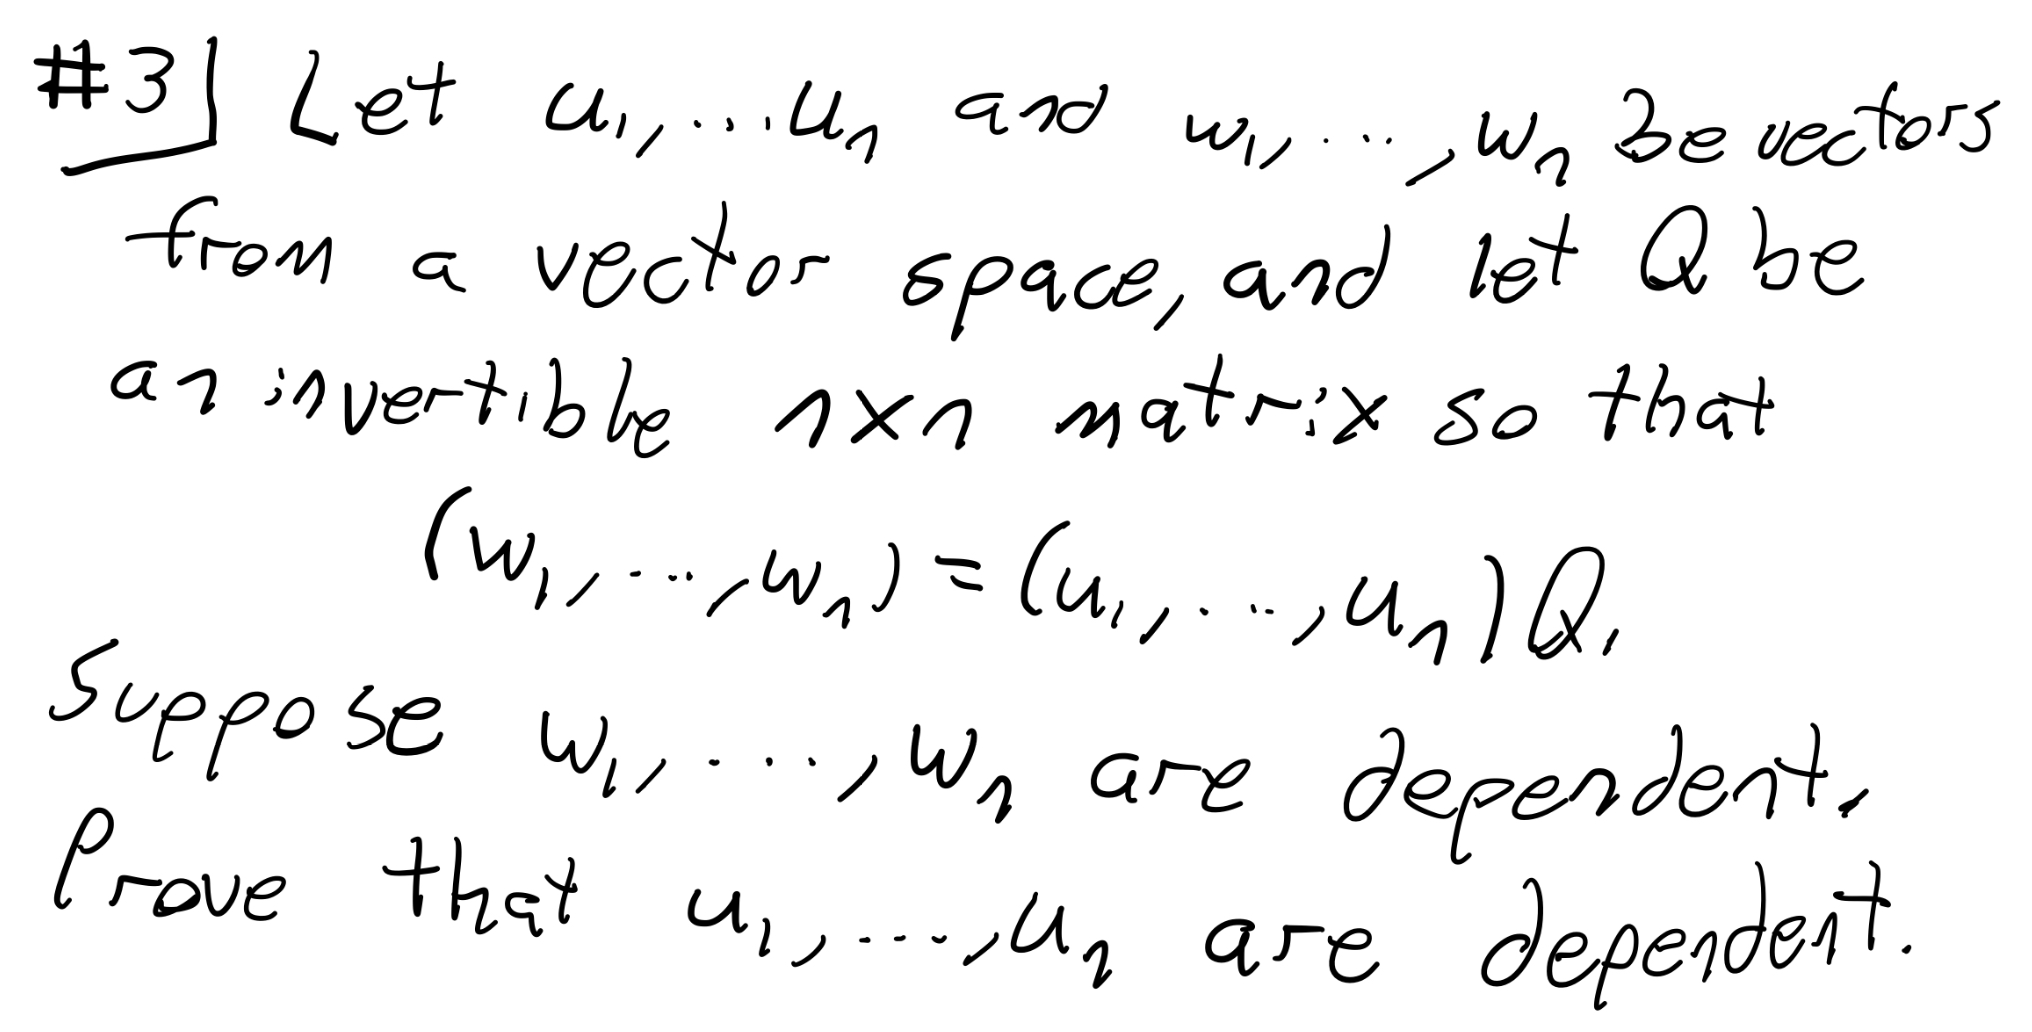 #3] Let u₁,...u_n and w₁,...,w_n be vectors
from a vector space, and let Q be
an invertible n×n matrix so that
(w₁,...,w_n) = (u₁,...,u_n)Q.
Suppose w₁,...,w_n are dependent.
Prove that u₁,...,u_n are dependent.